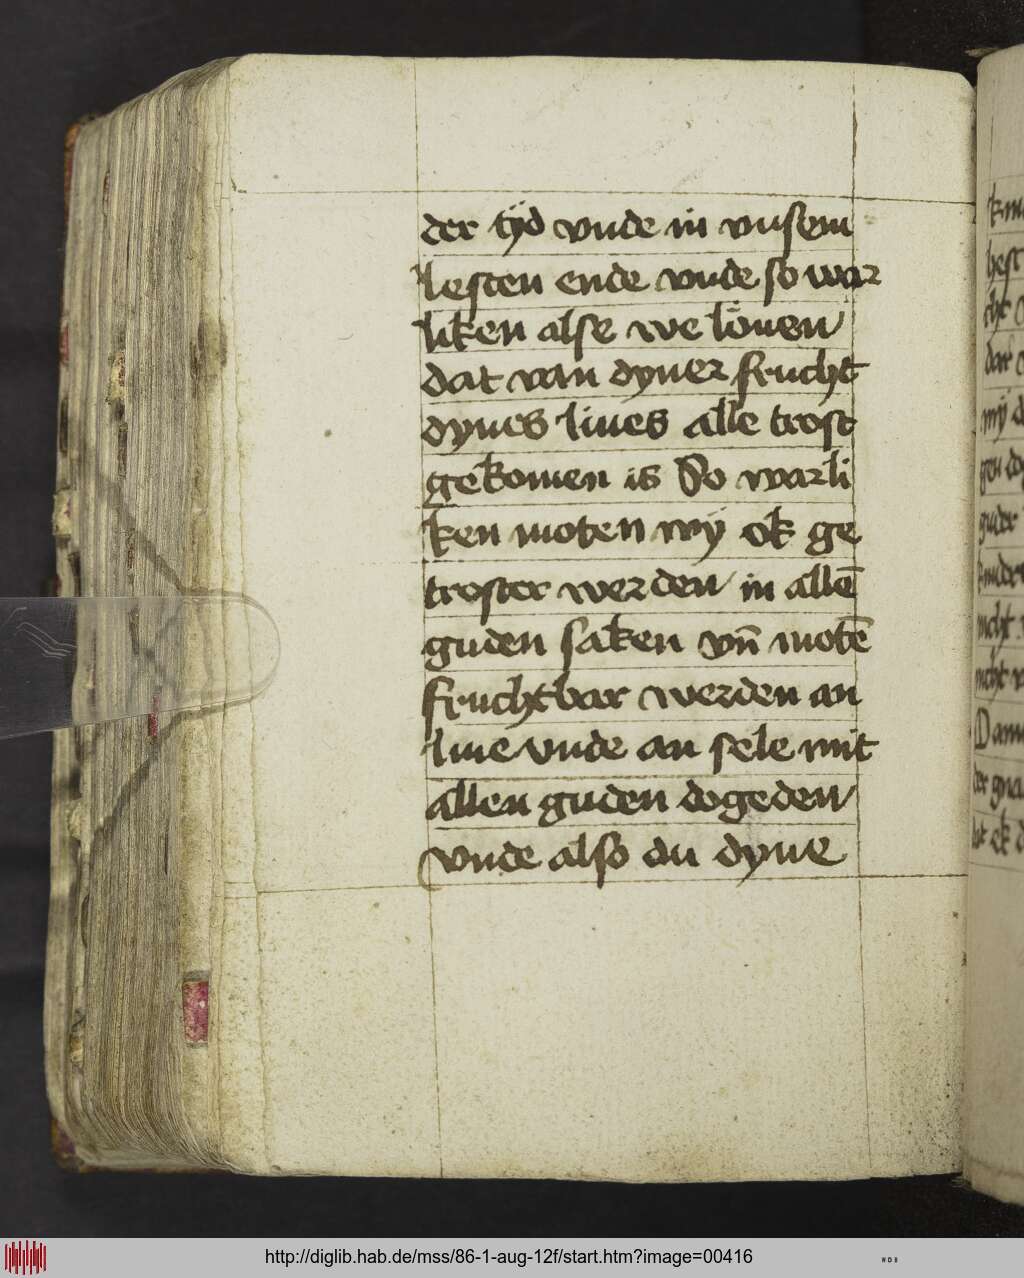 der tÿd vnde in vnsem
lesten ende vnde so war
liken alse we löuen
dat van dyner frucht
dynes liues alle trost
gekomen is So warli
ken moten wÿ ok ge
trostet werden in allē
guden saken vn̄ motē
fruchtbar werden an
liue vnde an sele mit
allen guden dogeden
vnde also du dyne
http://diglib.hab.de/mss/86-1-aug-12f/start.htm?image=00416